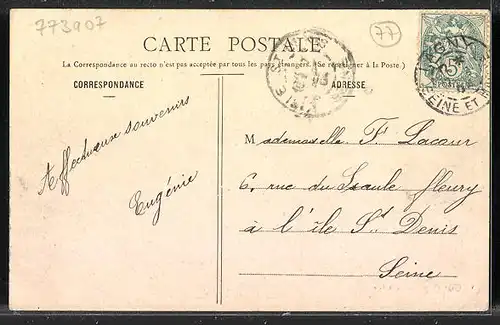 773907
77
CARTE POSTALE
La Correspondance au recto n'est pas acceptée par tous les pays étrangers. (Se renseigner à la Poste.)
CORRESPONDANCE
ADRESSE
Affectueux souvenirs
Eugénie
Mademoiselle F. Lacour
6, rue du Saule fleury
à l'île St Denis
Seine